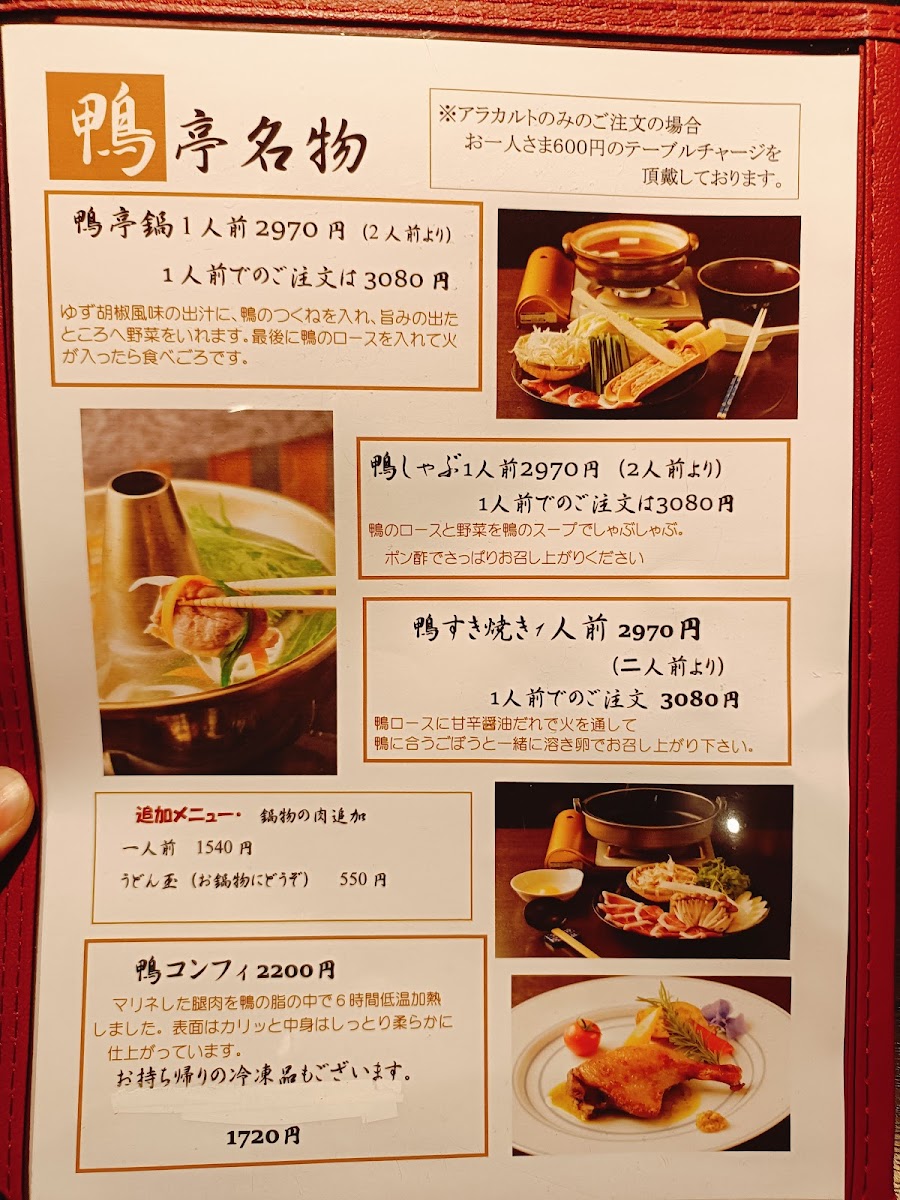 鴨亭名物
※アラカルトのみのご注文の場合
お一人さま600円のテーブルチャージを
頂戴しております。
鴨亭鍋1人前2970円(2人前より)
1人前でのご注文は3080円
ゆず胡椒風味の出汁に、鴨のつくねを入れ、旨みの出た
ところへ野菜をいれます。最後に鴨のロースを入れて火
が入ったら食べごろです。
鴨しゃぶ1人前2970円(2人前より)
1人前でのご注文は3080円
鴨のロースと野菜を鴨のスープでしゃぶしゃぶ。
ポン酢でさっぱりお召し上がりください
鴨すき焼き1人前 2970円
(二人前より)
1人前でのご注文 3080円
鴨ロースに甘辛醤油だれで火を通して
鴨に合うごぼうと一緒に溶き卵でお召し上がり下さい。
追加メニュー・ 鍋物の肉追加
一人前 1540円
うどん玉(お鍋物にどうぞ) 550円
鴨コンフィ2200円
マリネした腿肉を鴨の脂の中で6時間低温加熱
しました。表面はカリッと中身はしっとり柔らかに
仕上がっています。
お持ち帰りの冷凍品もございます。
1720円